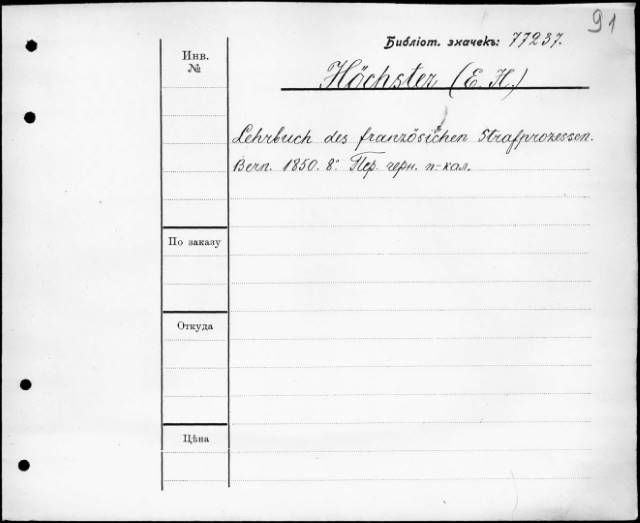 91
Библіот. значекъ: 77237.
Инв.
№
Höchster (E. H.)
Lehrbuch des französichen Strafprozessen.
Bern. 1850. 8º. Пер. черн. п-кал.
По заказу
Откуда
Цѣна